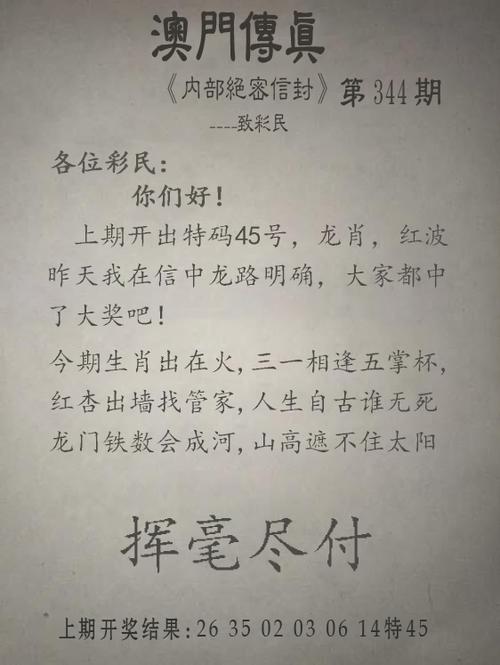 澳門傳眞
《内部絕密信封》第344期
----致彩民
各位彩民：
你们好！
上期开出特码45号，龙肖，红波
昨天我在信中龙路明确，大家都中
了大奖吧！
今期生肖出在火,三一相逢五掌杯,
红杏出墙找管家,人生自古谁无死
龙门铁数会成河,山高遮不住太阳
挥毫尽付
上期开奖结果:26 35 02 03 06 14特45